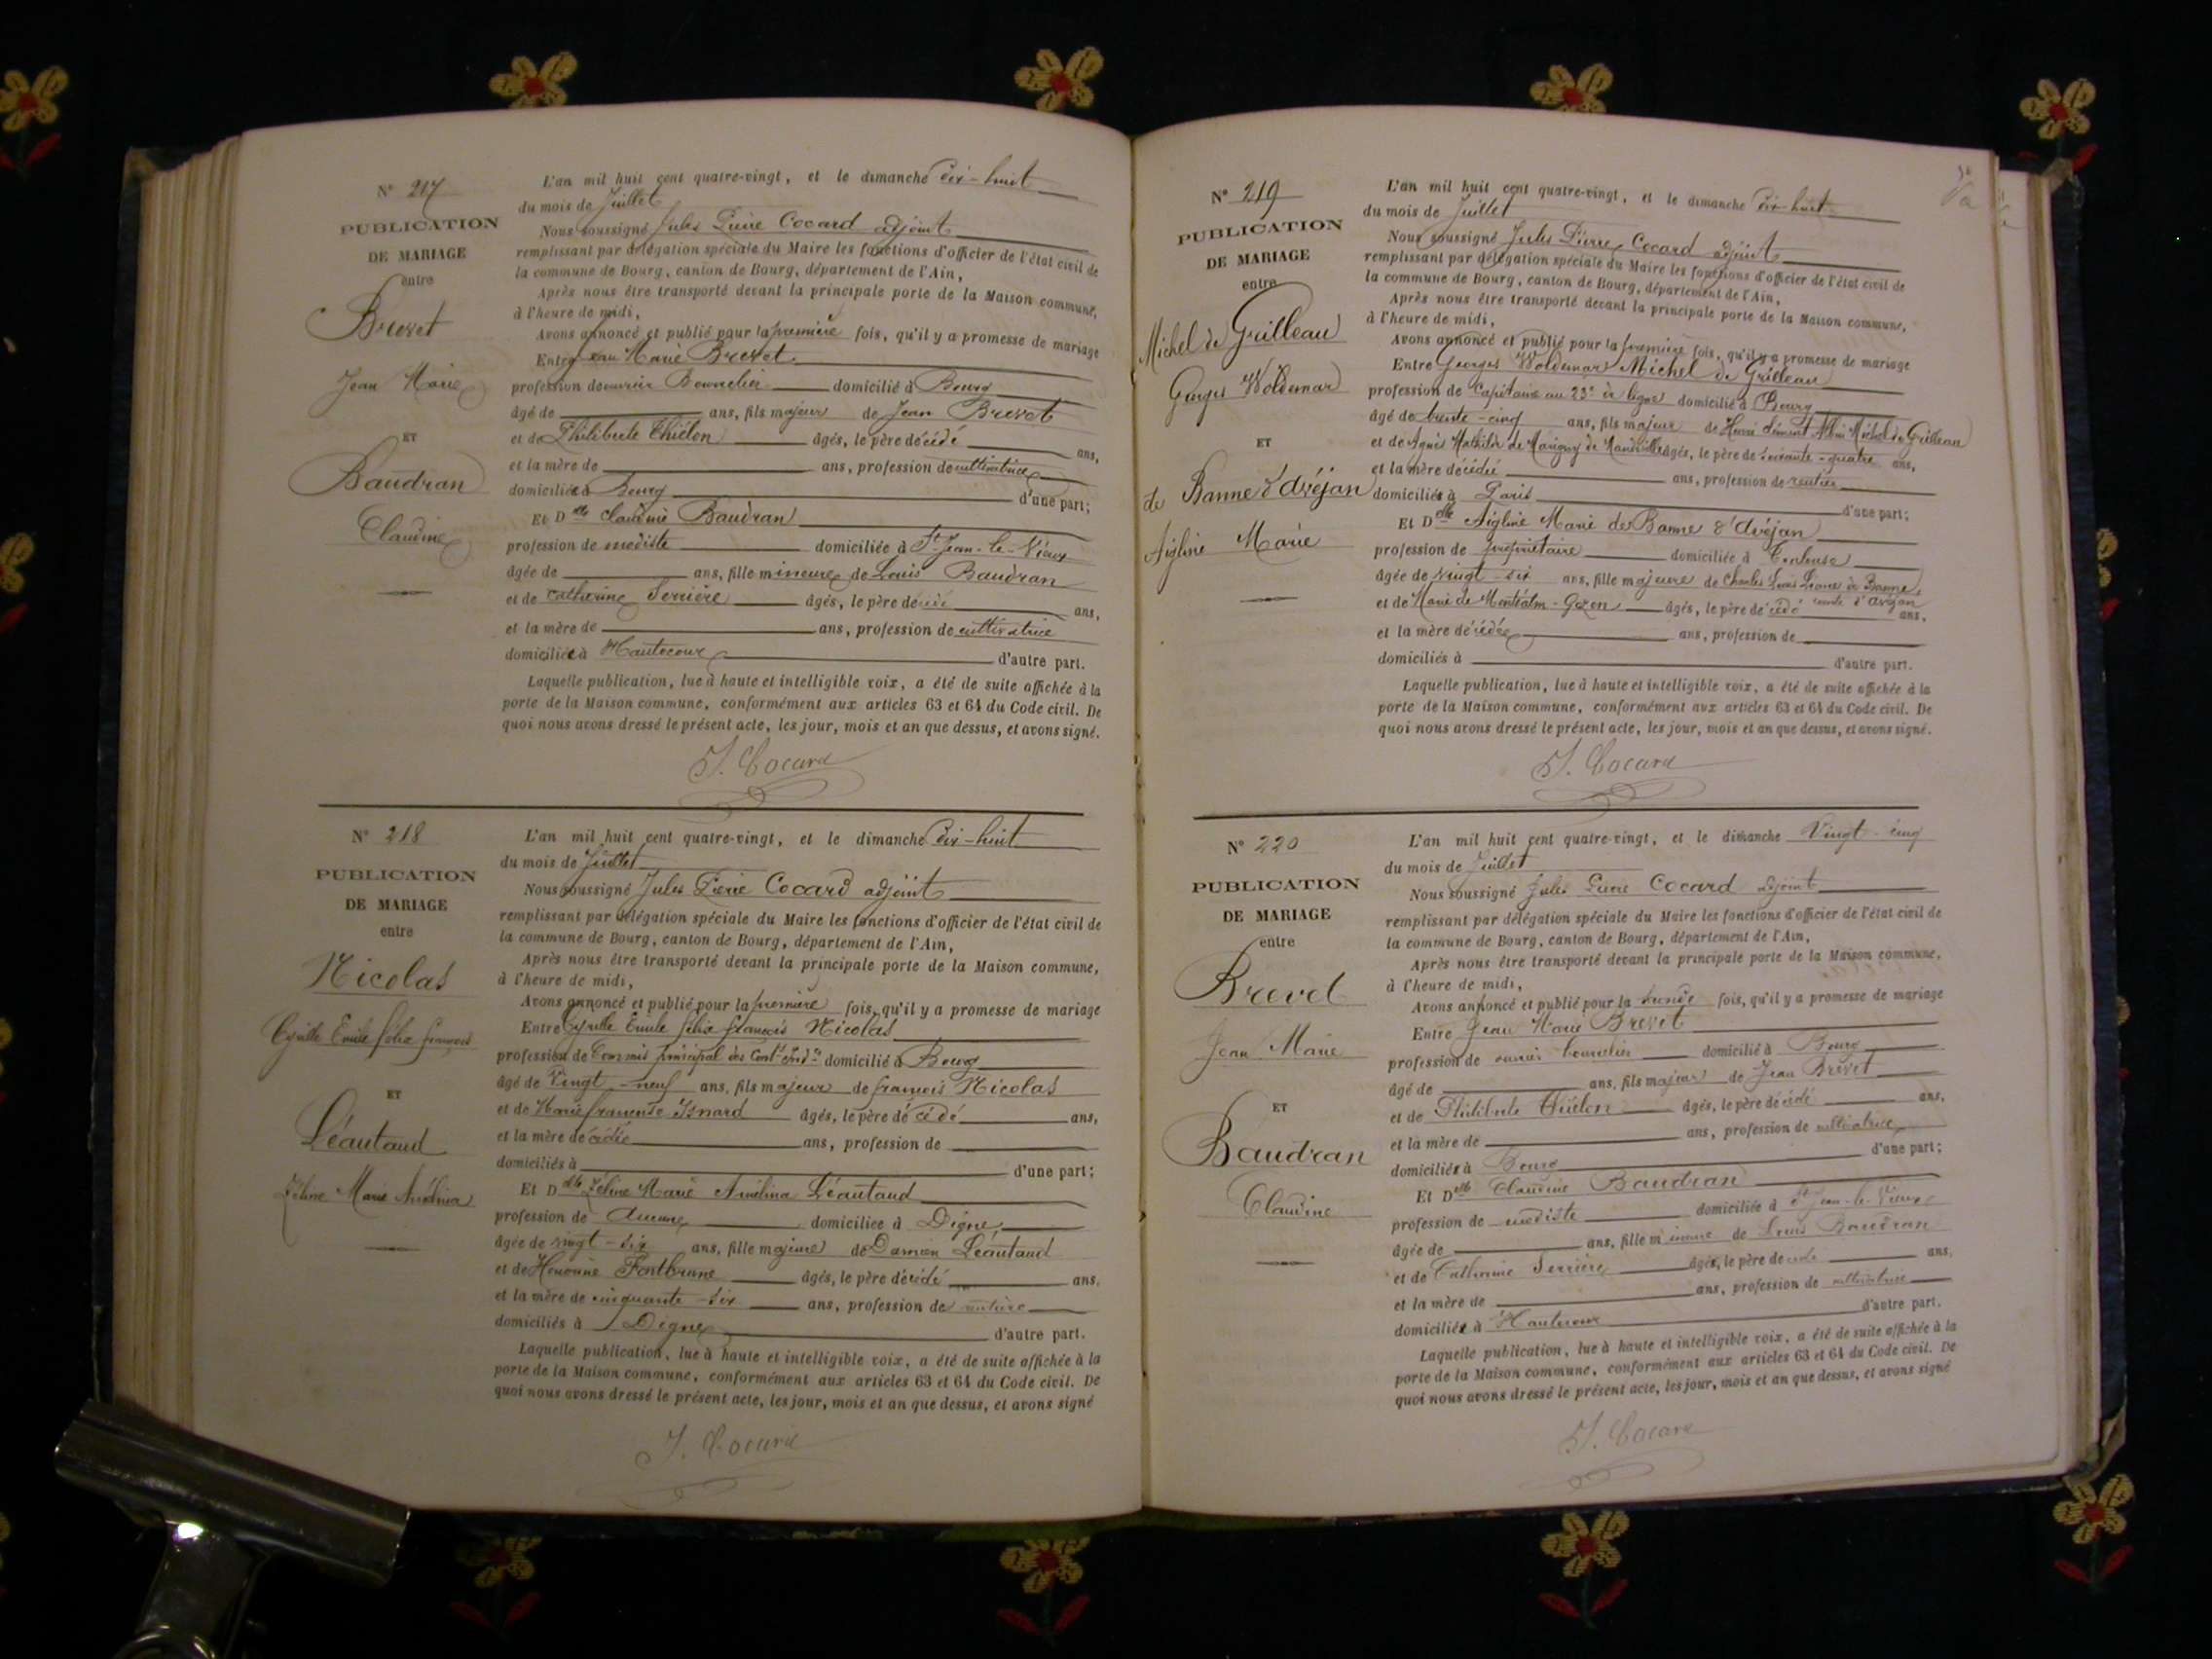 N° 217
PUBLICATION
DE MARIAGE
entre
Brevet
Jean Marie
ET
Baudran
Claudine
L'an mil huit cent quatre-vingt, et le dimanche dix-huit
du mois de Juillet
Nous soussigné Jules Pierre Cocard adjoint
remplissant par délégation spéciale du Maire les fonctions d'officier de l'état civil de
la commune de Bourg, canton de Bourg, département de l'Ain,
Après nous être transporté devant la principale porte de la Maison commune,
à l'heure de midi,
Avons annoncé et publié pour la première fois, qu'il y a promesse de mariage
Entre Jean Marie Brevet
profession de ouvrier Bourrelier domicilié à Bourg
âgé de ans, fils majeur de Jean Brevet
et de Philiberte Thiélon âgés, le père décédé ans,
et la mère de ans, profession de cultivatrice
domiciliée à Bourg d'une part;
Et Dlle Claudine Baudran
profession de modiste domiciliée à St Jean-le-Vieux
âgée de ans, fille mineure de Louis Baudran
et de Catherine Serrière âgés, le père décédé ans,
et la mère de ans, profession de cultivatrice
domiciliée à Hautecour d'autre part.
Laquelle publication, lue à haute et intelligible voix, a été de suite affichée à la
porte de la Maison commune, conformément aux articles 63 et 64 du Code civil. De
quoi nous avons dressé le présent acte, les jour, mois et an que dessus, et avons signé.
J. Cocard
N° 218
PUBLICATION
DE MARIAGE
entre
Nicolas
Cyrille Emile félix françois
ET
Léautaud
Zéline Marie Amélina
L'an mil huit cent quatre-vingt, et le dimanche dix-huit
du mois de Juillet
Nous soussigné Jules Pierre Cocard adjoint
remplissant par délégation spéciale du Maire les fonctions d'officier de l'état civil de
la commune de Bourg, canton de Bourg, département de l'Ain,
Après nous être transporté devant la principale porte de la Maison commune,
à l'heure de midi,
Avons annoncé et publié pour la première fois, qu'il y a promesse de mariage
Entre Cyrille Emile félix françois Nicolas
profession de Commis principal des domicilié à Bourg
âgé de Vingt-neuf ans, fils majeur de françois Nicolas
et de Marie françoise Isnard âgés, le père décédé ans,
et la mère décédée ans, profession de
domiciliés à d'une part;
Et Dlle Zéline Marie Amélina Léautaud
profession de Aucune domiciliée à Digne
âgée de vingt-six ans, fille majeure de Damien Léautaud
et de Honorine Fontbrune âgés, le père décédé ans,
et la mère de cinquante-six ans, profession de rentière
domiciliés à Digne d'autre part.
Laquelle publication, lue à haute et intelligible voix, a été de suite affichée à la
porte de la Maison commune, conformément aux articles 63 et 64 du Code civil. De
quoi nous avons dressé le présent acte, les jour, mois et an que dessus, et avons signé
J. Cocard
N° 219
PUBLICATION
DE MARIAGE
entre
Michel de Grilleau
Georges Woldemar
ET
de Banne d'Avéjan
Aigline Marie
L'an mil huit cent quatre-vingt, et le dimanche dix-huit
du mois de Juillet
Nous soussigné Jules Pierre Cocard adjoint
remplissant par délégation spéciale du Maire les fonctions d'officier de l'état civil de
la commune de Bourg, canton de Bourg, département de l'Ain,
Après nous être transporté devant la principale porte de la Maison commune,
à l'heure de midi,
Avons annoncé et publié pour la première fois, qu'il y a promesse de mariage
Entre Georges Woldemar Michel de Grilleau
profession de Capitaine au 23e de ligne domicilié à Bourg
âgé de trente-cinq ans, fils majeur de Henri Clément Michel de Grilleau
et de Agnès Mathilde de Marigny de Mandeville âgés, le père de soixante-quatre ans,
et la mère décédée ans, profession de rentier
domiciliés à Paris d'une part;
Et Dlle Aigline Marie de Banne d'Avéjan
profession de propriétaire domiciliée à Toulouse
âgée de vingt-six ans, fille majeure de Charles Louis de Banne,
comte d'avéjan
et de Marie de Montcalm-Gozon âgés, le père décédé ans,
et la mère décédée ans, profession de
domiciliés à d'autre part.
Laquelle publication, lue à haute et intelligible voix, a été de suite affichée à la
porte de la Maison commune, conformément aux articles 63 et 64 du Code civil. De
quoi nous avons dressé le présent acte, les jour, mois et an que dessus, et avons signé.
J. Cocard
N° 220
PUBLICATION
DE MARIAGE
entre
Brevet
Jean Marie
ET
Baudran
Claudine
L'an mil huit cent quatre-vingt, et le dimanche Vingt-cinq
du mois de Juillet
Nous soussigné Jules Pierre Cocard adjoint
remplissant par délégation spéciale du Maire les fonctions d'officier de l'état civil de
la commune de Bourg, canton de Bourg, département de l'Ain,
Après nous être transporté devant la principale porte de la Maison commune,
à l'heure de midi,
Avons annoncé et publié pour la seconde fois, qu'il y a promesse de mariage
Entre Jean Marie Brevet
profession de ouvrier bourrelier domicilié à Bourg
âgé de ans, fils majeur de Jean Brevet
et de Philiberte Thiélon âgés, le père décédé ans,
et la mère de ans, profession de cultivatrice
domiciliée à Bourg d'une part;
Et Dlle Claudine Baudran
profession de modiste domiciliée à St Jean-le-Vieux
âgée de ans, fille mineure de Louis Baudran
et de Catherine Serrière âgés, le père décédé ans,
et la mère de ans, profession de cultivatrice
domiciliée à Hautecour d'autre part.
Laquelle publication, lue à haute et intelligible voix, a été de suite affichée à la
porte de la Maison commune, conformément aux articles 63 et 64 du Code civil. De
quoi nous avons dressé le présent acte, les jour, mois et an que dessus, et avons signé
J. Cocard